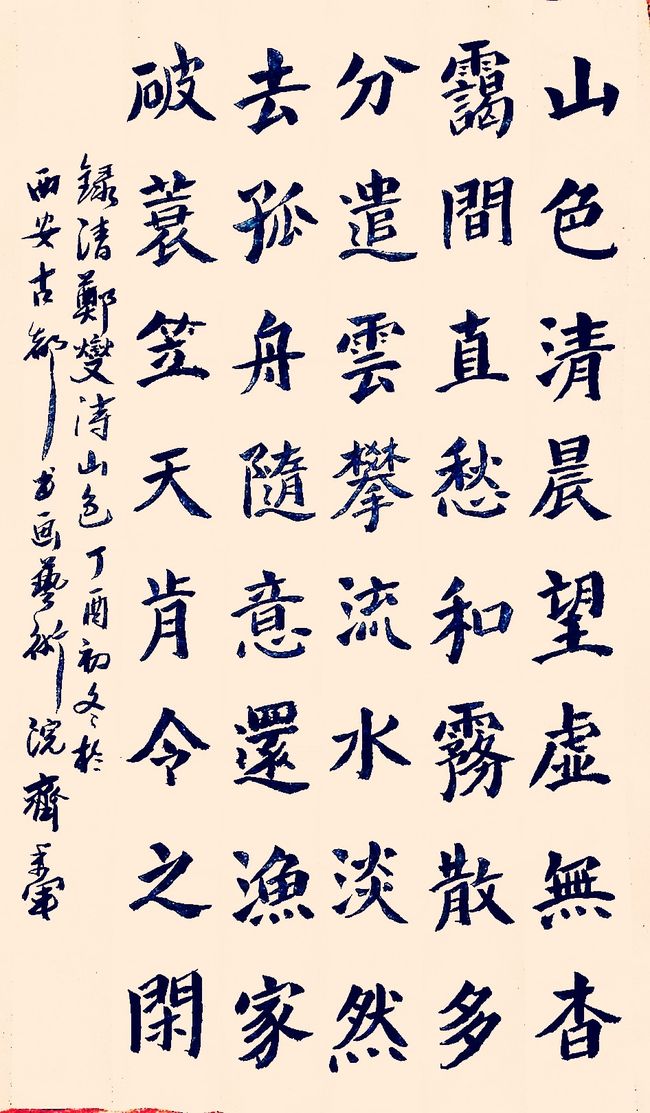 山色清晨望虛無杳
靄間直愁和霧散多
分遣雲攀流水淡然
去孤舟隨意還漁家
破蓑笠天肯令之閑
録清鄭燮诗山色丁酉初冬於
西安古都书画藝術院齊